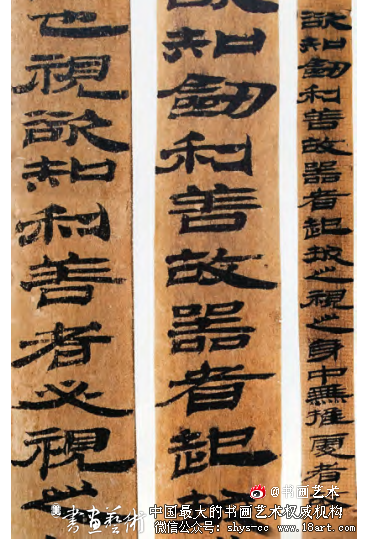 欲知劒利善故器者起拔之視之身中無推處者
欲知劒利善故器者起拔
也視欲知利善者必視之
@书画艺术
書畫藝術
中国最大的书画艺术权威机构
微信公众号：shys-cc www.18art.com